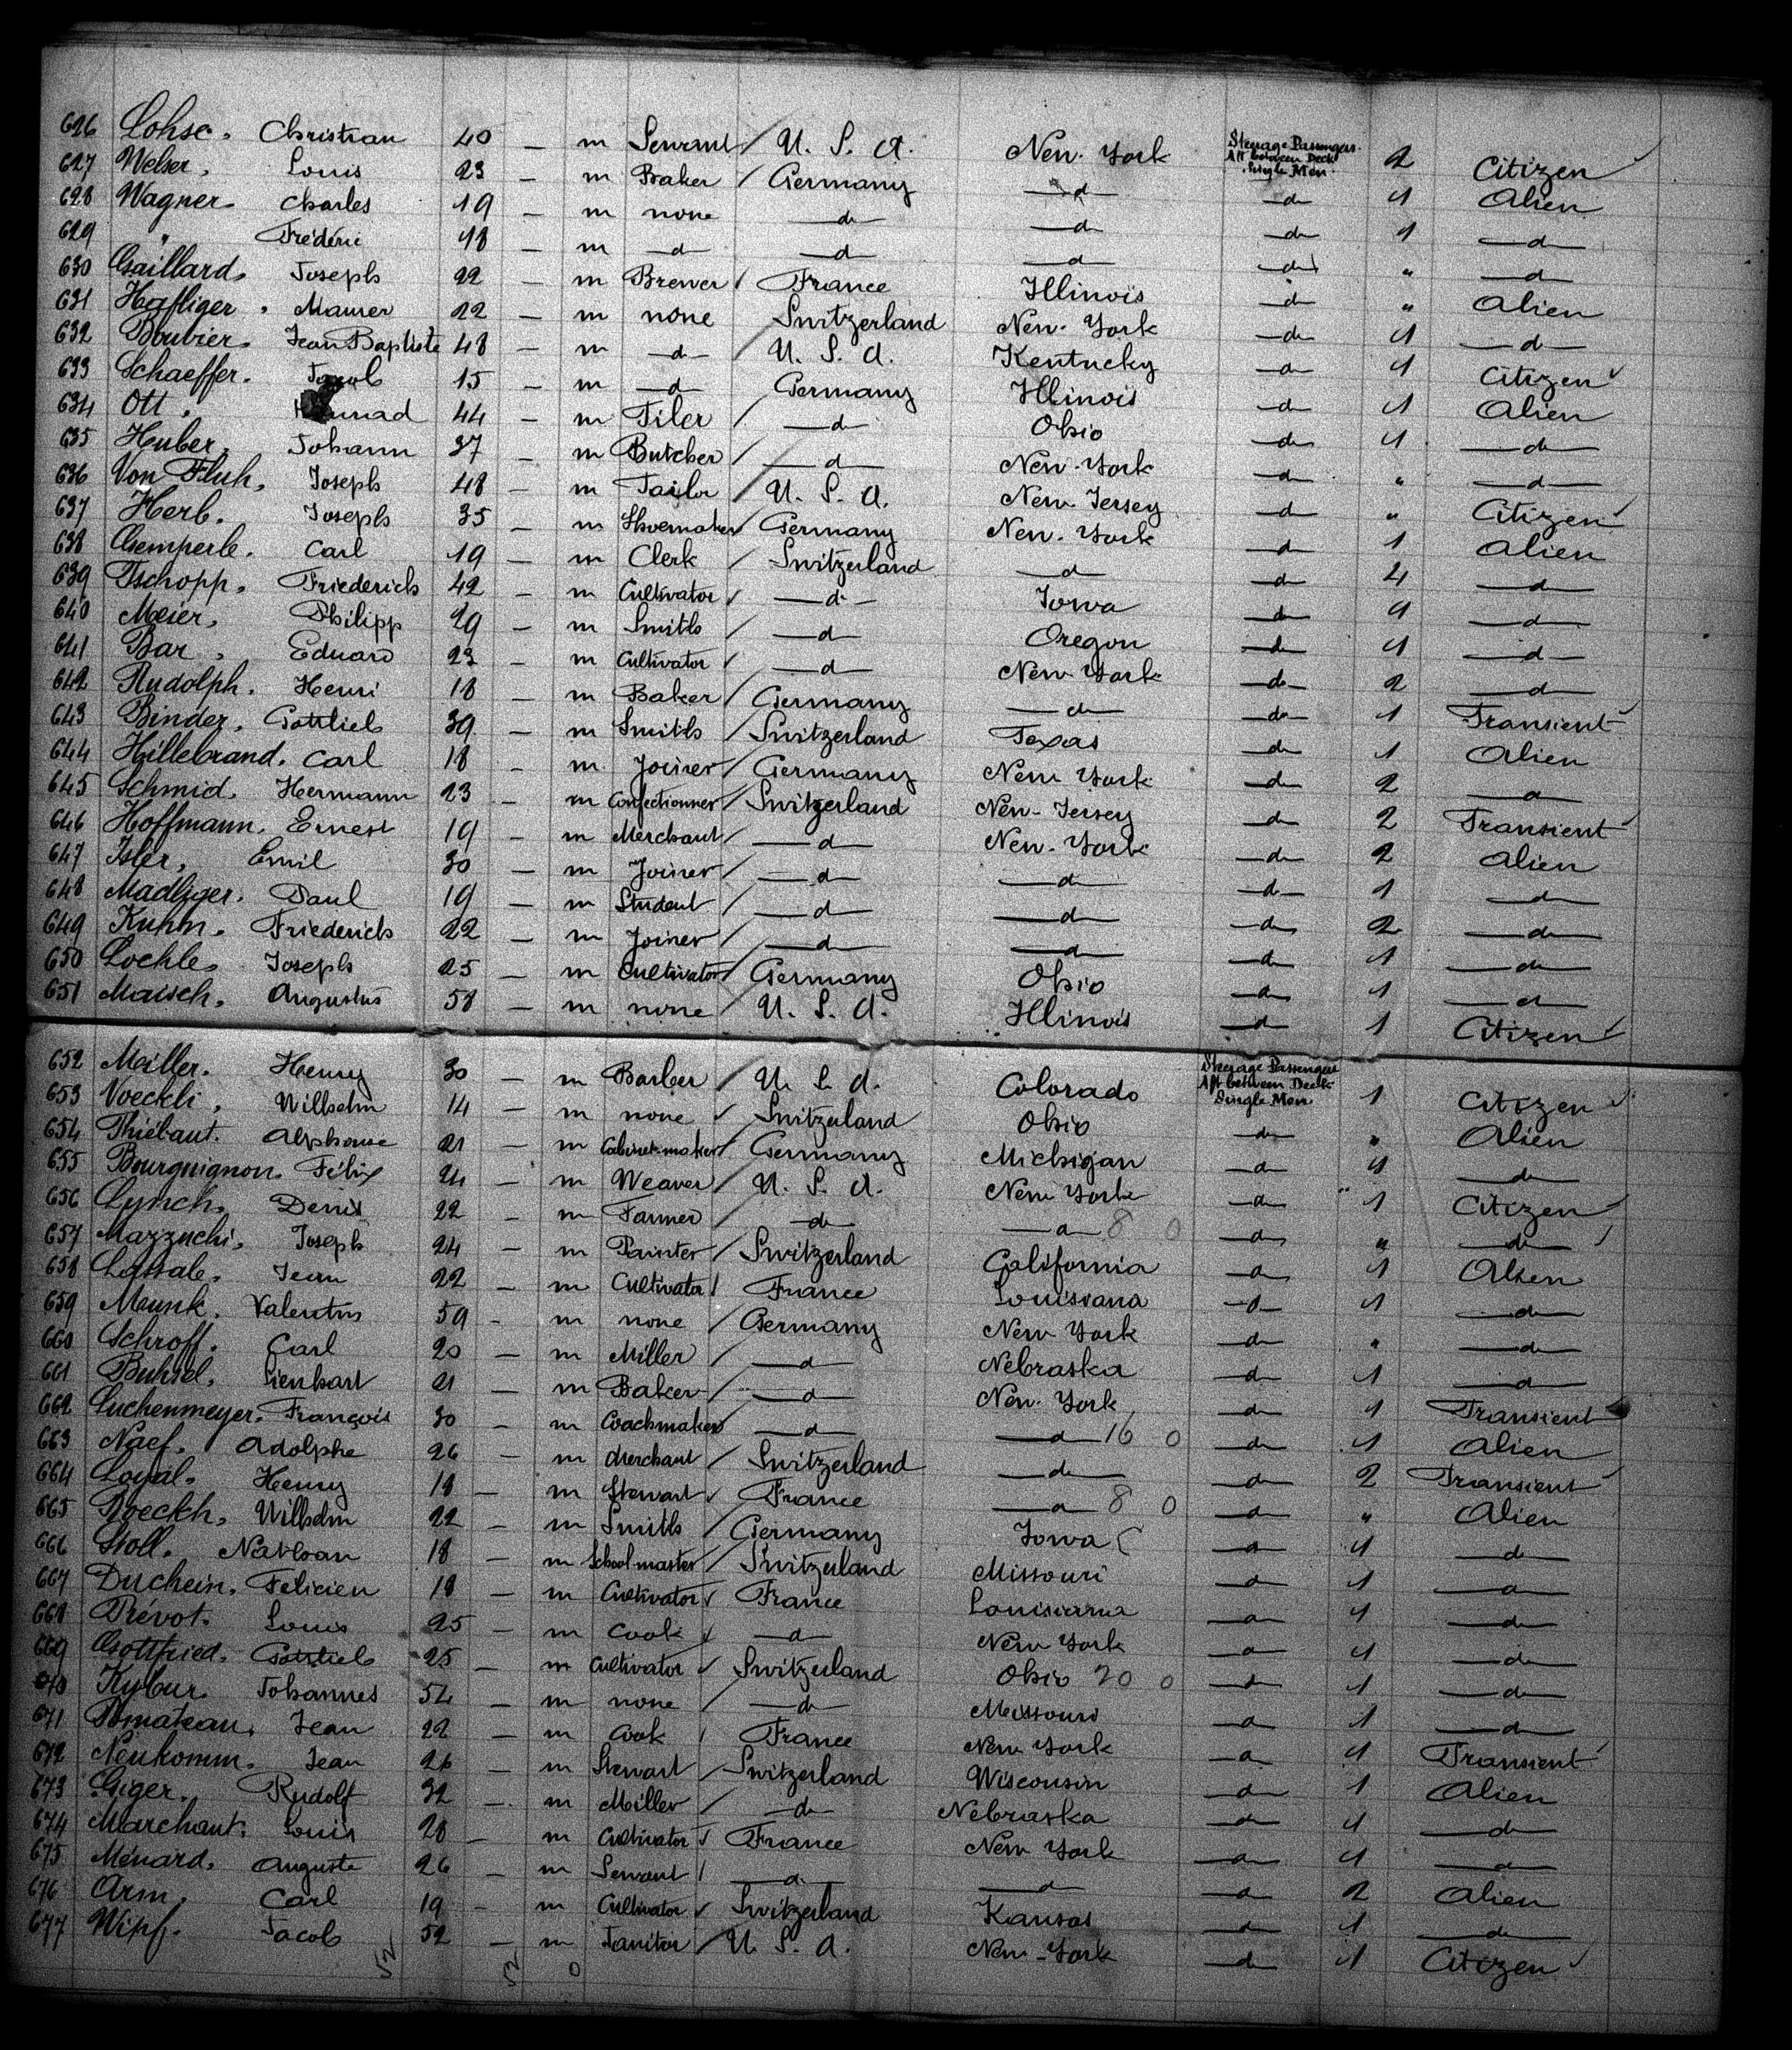 626 Lohse. Christian 40 — m Servant / U. S. A. New-York Steerage Passengers. Aft between Deck Single Men 2 Citizen
627 Welser, Louis 23 — m Baker / Germany —d— —d— 1 Alien
628 Wagner Charles 19 — m none —d— —d— —d— 1 —d—
629 " Frédéric 18 — m —d— —d— —d— —d— " —d—
630 Gaillard. Joseph 22 — m Brewer / France Illinois —d— " Alien
631 Hafliger. Maurer 22 — m none / Switzerland New-York —d— 1 —d—
632 Bouvier. Jean Baptiste 48 — m —d— / U. S. A. Kentucky —d— 1 Citizen
633 Schaeffer. Jacob 15 — m —d— Germany Illinois —d— 1 Alien
634 Ott. 44 — m Tiler / —d— Ohio —d— 1 —d—
635 Huber. Johann 37 — m Butcher / —d— New-York —d— " —d—
636 Von Fluh. Joseph 48 — m Tailor / U. S. A. New Jersey —d— " Citizen
637 Herb. Joseph 35 — m Shoemaker / Germany New-York —d— 1 Alien
638 Gemperle. Carl 19 — m Clerk / Switzerland —d— —d— 4 —d—
639 Tschopp. Friederich 42 — m Cultivator / —d— Iowa —d— 1 —d—
640 Meier. Philipp 29 — m Smith / —d— Oregon —d— 1 —d—
641 Bar. Eduard 23 — m Cultivator / —d— New-York —d— 2 —d—
642 Rudolph. Henri 18 — m Baker / Germany —d— —d— 1 Transient
643 Binder. Gottlieb 39 — m Smith / Switzerland Texas —d— 1 Alien
644 Hillebrand. Carl 18 — m Joiner / Germany New York —d— 2 —d—
645 Schmid. Hermann 23 — m Confectionner / Switzerland New-Jersey —d— 2 Transient
646 Hoffmann. Ernest 19 — m Merchant / —d— New-York —d— 2 Alien
647 Isler. Emil 30 — m Joiner / —d— —d— —d— 1 —d—
648 Madliger. Paul 19 — m Student / —d— —d— —d— 2 —d—
649 Kuhn. Friederich 22 — m Joiner / —d— —d— —d— 1 —d—
650 Lochle. Joseph 25 — m Cultivator / Germany Ohio —d— 1 —d—
651 Maisch. Augustus 58 — m none / U. S. A. Illinois —d— 1 Citizen
652 Meiller. Henry 30 — m Barber / U. S. A. Colorado Steerage Passengers Aft between Deck Single Men 1 Citizen
653 Voeckli. Wilhelm 14 — m none / Switzerland Ohio —d— " Alien
654 Thiébaut. Alphonse 21 — m Cabinet-maker / Germany Michigan —d— 1 —d—
655 Bourguignon. Félix 24 — m Weaver / U. S. A. New York —d— 1 Citizen
656 Lynch. Denis 22 — m Farmer / —d— —d— 8 0 —d— " —d—
657 Mazzuchi. Joseph 24 — m Painter / Switzerland California —d— 1 Alien
658 Lassale. Jean 22 — m Cultivator / France Louisiana —d— 1 —d—
659 Mounk. Valentin 59 — m none / Germany New York —d— " —d—
660 Schroff. Carl 20 — m Miller / —d— Nebraska —d— 1 —d—
661 Buhsel. Lienhart 21 — m Baker / —d— New-York —d— 1 Transient
662 Luchenmeyer. François 30 — m Coachmaker / —d— —d— 16 0 —d— 1 Alien
663 Naef. Adolphe 26 — m Merchant / Switzerland —d— —d— 2 Transient
664 Loyal. Henry 18 — m Stewart / France —d— 8 0 —d— " Alien
665 Boeckh. Wilhelm 22 — m Smith / Germany Iowa —d— 1 —d—
666 Stoll. Nathan 18 — m School-master / Switzerland Missouri —d— 1 —d—
667 Duchein. Felicien 18 — m Cultivator / France Louisiana —d— 1 —d—
668 Prévot. Louis 25 — m Cook / —d— New York —d— 1 —d—
669 Gottfried. Gottlieb 25 — m Cultivator / Switzerland Ohio 20 0 —d— 1 —d—
670 Kybur. Johannes 54 — m none / —d— Missouri —d— 1 —d—
671 Jean 22 — m Cook / France New York —d— 1 Transient
672 Neukomm. Jean 26 — m Stewart / Switzerland Wisconsin —d— 1 Alien
673 Giger. Rudolf 32 — m Miller / —d— Nebraska —d— 1 —d—
674 Marchant. Louis 28 — m Cultivator / France New York —d— 1 —d—
675 Ménard. Auguste 26 — m Servant / —d— —d— —d— 2 Alien
676 Arm. Carl 19 — m Cultivator / Switzerland Kansas —d— 1 —d—
677 Wipf. Jacob 52 — m Janitor / U. S. A. New-York —d— 1 Citizen
52 52 0